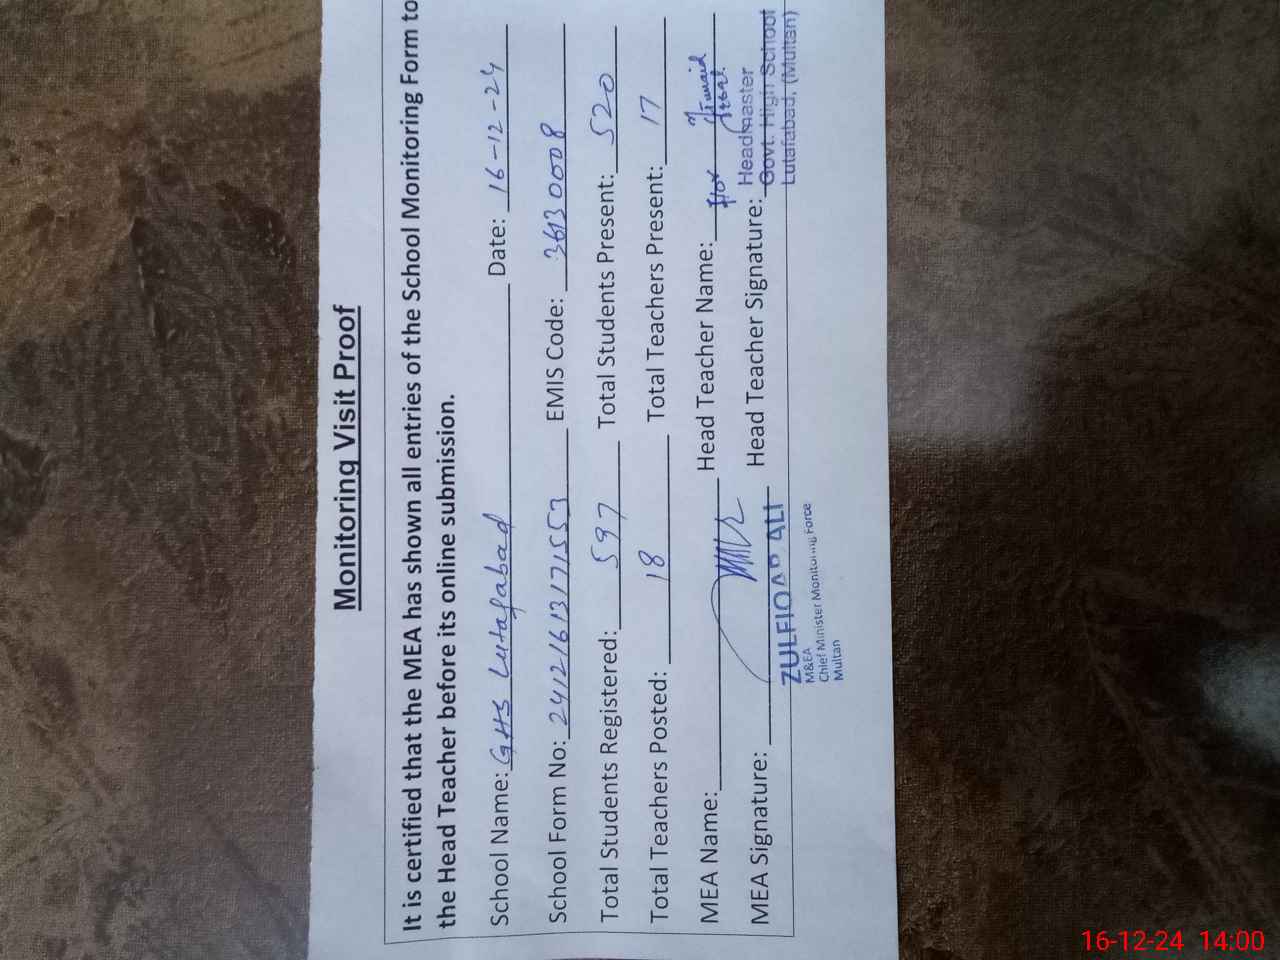 Monitoring Visit Proof
It is certified that the MEA has shown all entries of the School Monitoring Form to
the Head Teacher before its online submission.
School Name: GHS Lutafabad Date: 16-12-24
School Form No: 24121613171553 EMIS Code: 36130008
Total Students Registered: 597 Total Students Present: 520
Total Teachers Posted: 18 Total Teachers Present: 17
MEA Name: Head Teacher Name:
MEA Signature: Head Teacher Signature:
Headmaster
Govt. High School
Lutafabad, (Multan)
ZULFIQAR ALI
M&EA
Chief Minister Monitoring Force
Multan
16-12-24 14:00